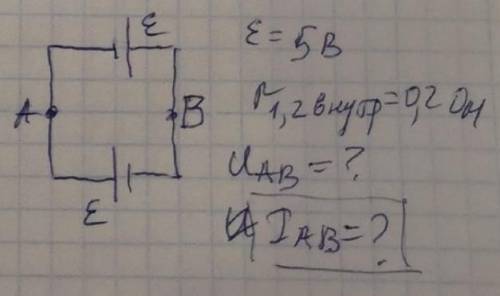 ε
A
B
ε
ε = 5 В
r1,2 внутр = 0,2 Ом
UAB = ?
IAB = ?